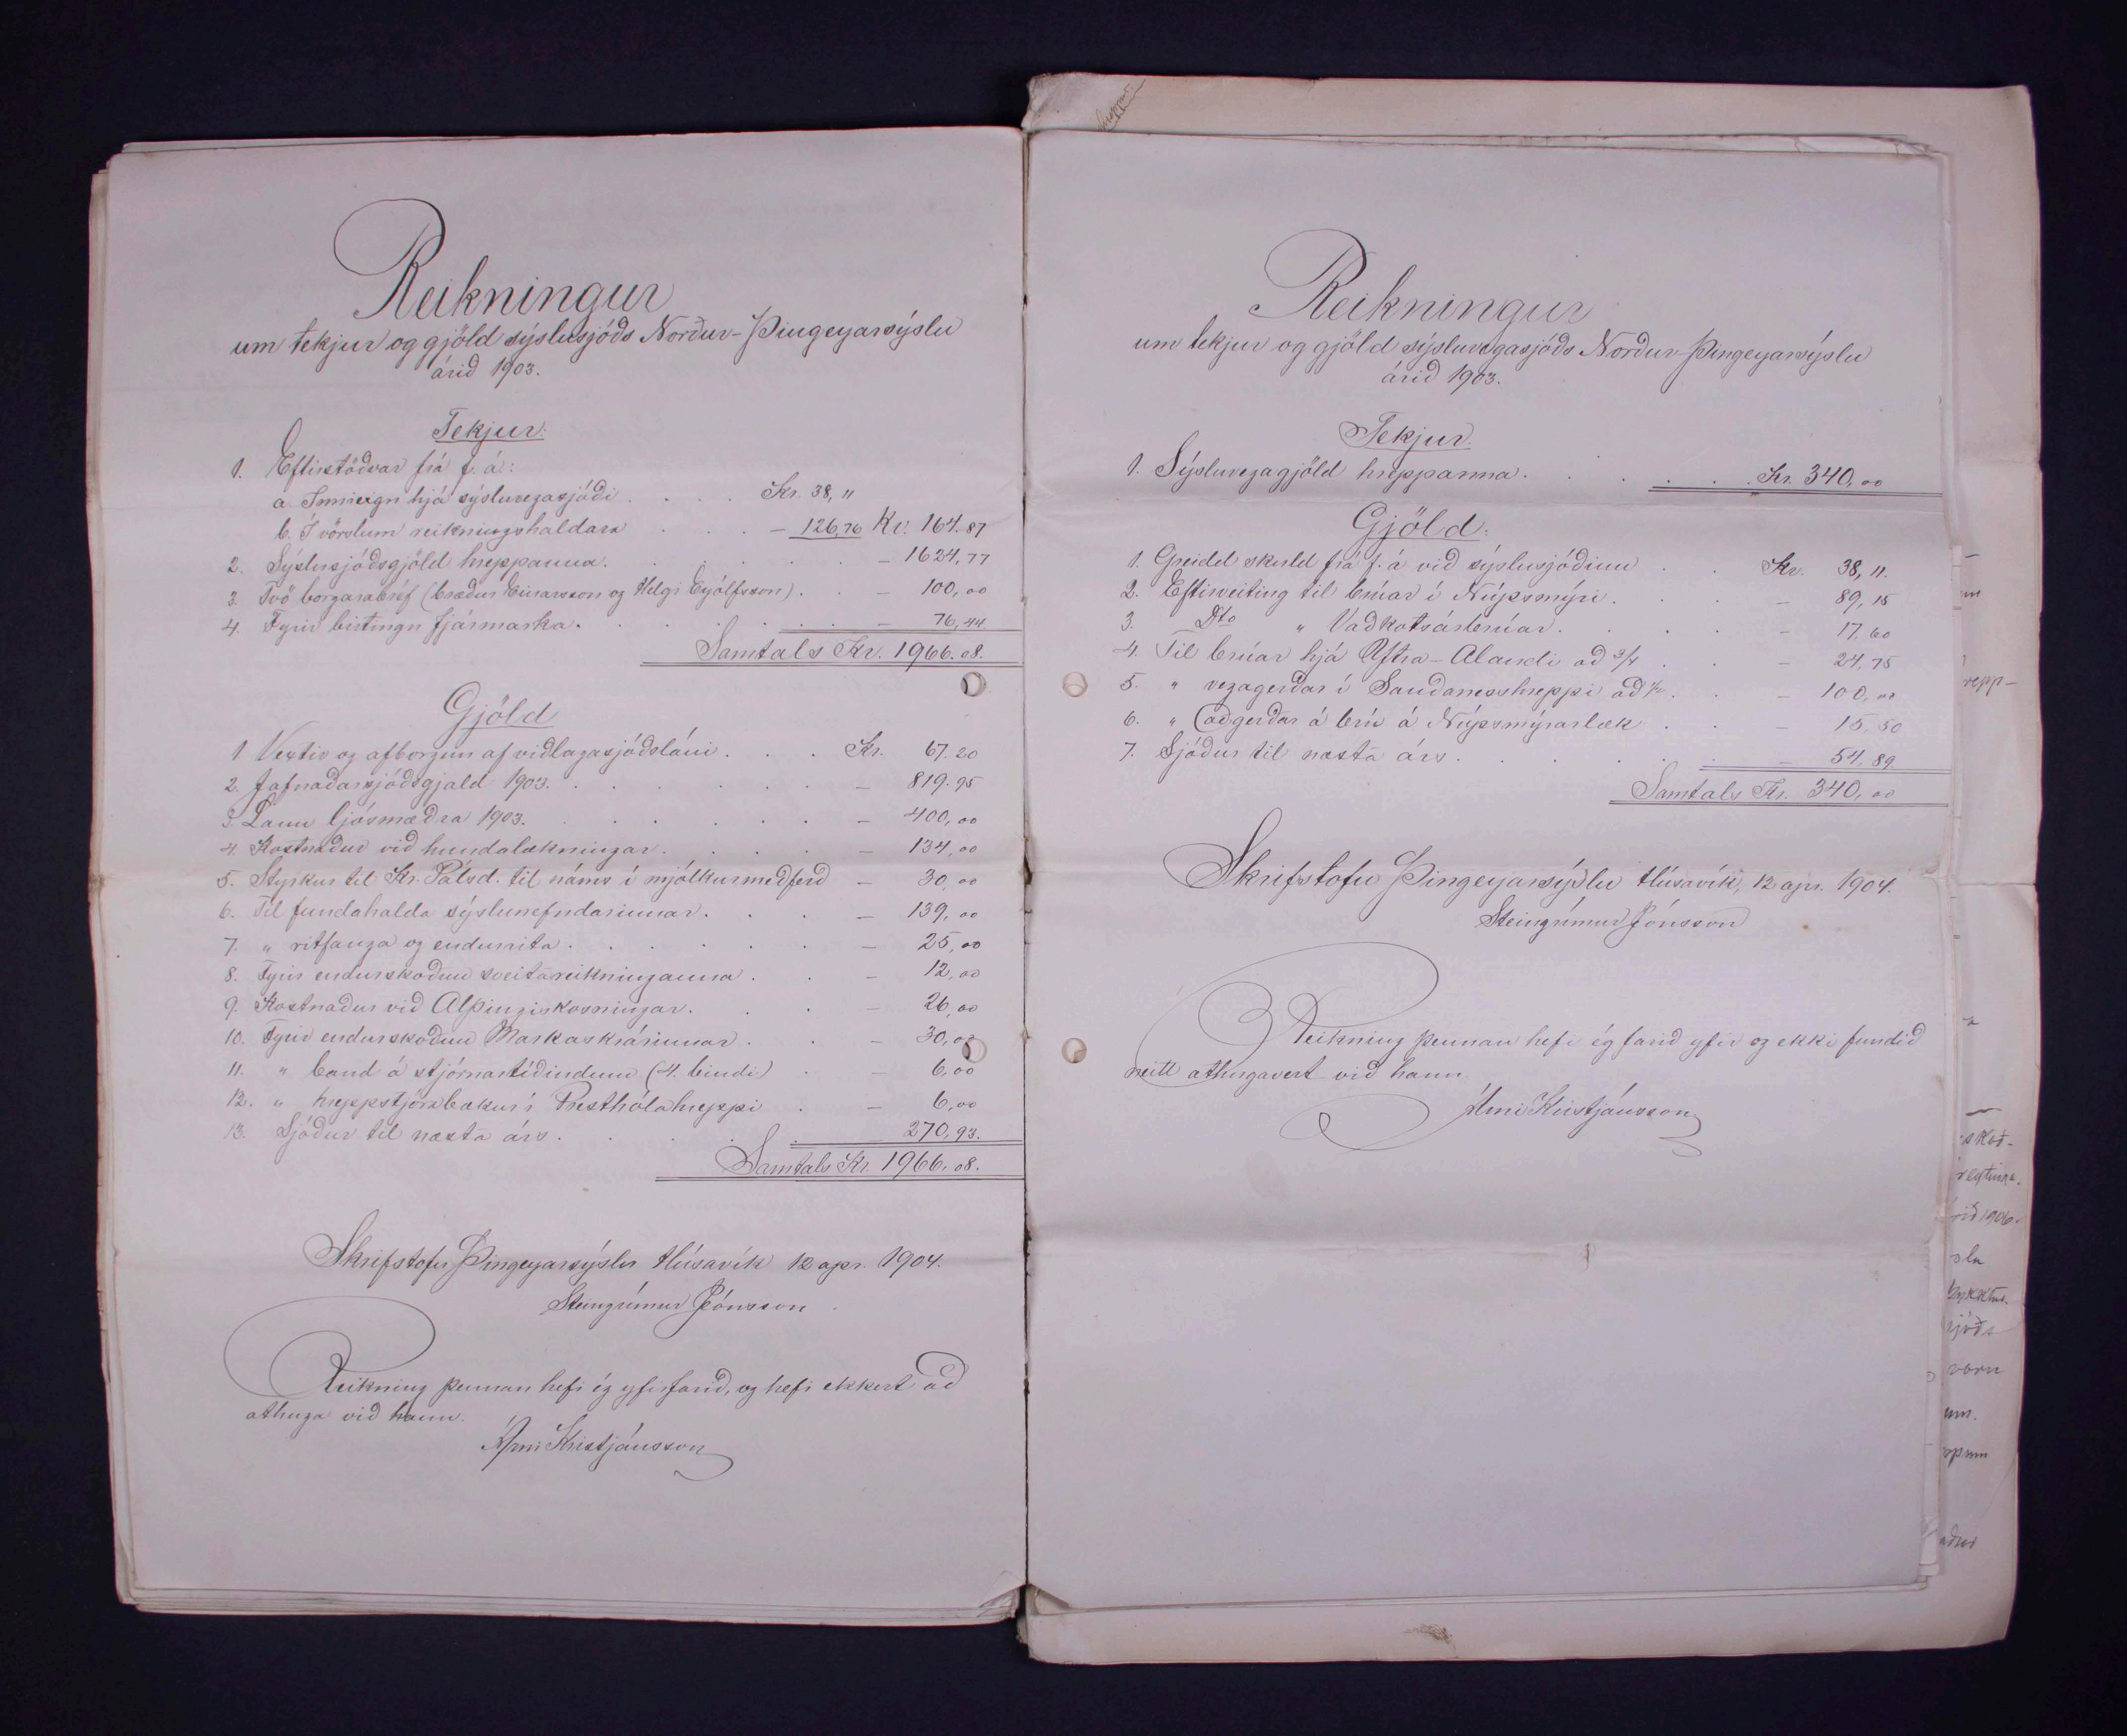 Reikningur
um tekjur og gjöld sýslusjóðs Norður-Þingeyarsýslu
árið 1903.
Tekjur:
1. Eftirstöðvar frá f. á:
a. Innieign hjá sýsluvegasjóði . . . . Kr. 38,11
b. Í vörslum reikningshaldara . . . — 126,76 Kr. 164.87
2. Sýslusjóðsgjöld hreppanna. . . . . . — 1624,77
3. Tvö borgarabréf (bræður Einarsson og Helgi Eyjólfsson) . . — 100,00
4. Fyrir birtingu fjármarka. . . . . . . — 76,44
Samtals Kr. 1966.08.
Gjöld
1. Vextir og afborgun af viðlagasjóðsláni . . . Kr. 67.20
2. Jafnaðarsjóðsgjald 1903. . . . . . . — 819.95
3. Laun ljósmæðra 1903. . . . . . . — 400,00
4. Kostnaður við hundalækningar. . . . . — 134,00
5. Styrkur til Kr. Pálsd. til náms í mjólkurmeðferð — 30,00
6. Til fundahalda sýslunefndarinnar. . . . — 139,00
7. " ritfanga og endurrita. . . . . . — 25,00
8. Fyrir endurskoðun sveitareikninganna . . — 12,00
9. Kostnaður við Alþingiskosningar. . . — 26,00
10. Fyrir endurskoðun Markaskrárinnar . . — 30,00
11. " band á stjórnartíðindum (4. bindi) . — 6.00
12. " hreppstjórabækur í Presthólahreppi . — 6,00
13. Sjóður til næsta árs. . . . . . 270,93.
Samtals Kr. 1966.08.
Skrifstofu Þingeyarsýslu Húsavík 12 apr. 1904.
Steingrímur Jónsson
Reikning þennan hefi ég yfirfarið, og hefi ekkert að
athuga við hann.
Árni Kristjánsson
Reikningur
um tekjur og gjöld sýsluvegasjóðs Norður-Þingeyarsýslu
árið 1903.
Tekjur.
1. Sýsluvegagjöld hreppanna. . . . . . Kr. 340,00
Gjöld:
1. Greidd skuld frá f. á við sýslusjóðinn . . Kr. 38,11.
2. Eftirveiting til brúar í Núpsmýri. . . — 89,15
3. Dto " Vaðkotsárbrúar. . . . — 17,60
4. Til brúar hjá Ytra-Alandi að 3/4 . . — 24,75
5. " vegagerðar í Sauðaneshreppi að 1/2. . — 100,00
6. " (aðgerðar á brú á Núpsmýrarlæk . . — 15,50
7. Sjóður til næsta árs. . . . . . — 54,89.
Samtals Kr. 340,00
Skrifstofu Þingeyarsýslu Húsavík, 12 apr. 1904.
Steingrímur Jónsson
Reikning þennan hefi ég farið yfir og ekki fundið
neitt athugavert við hann.
Árni Kristjánsson